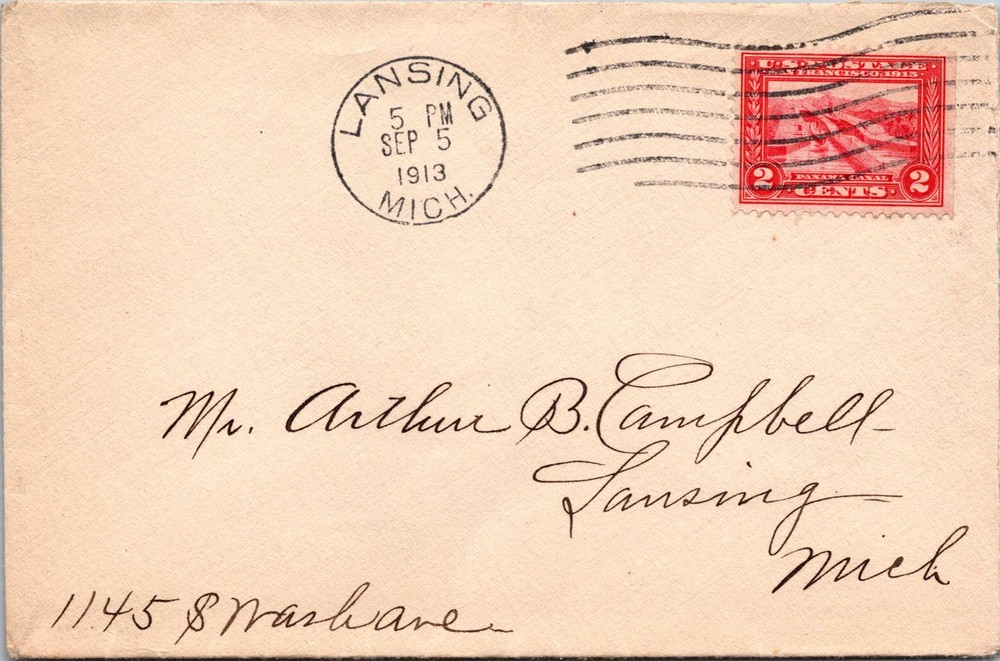 LANSING
5 PM
SEP 5
1913
MICH.
U.S. POSTAGE
SAN FRANCISCO, 1915
PANAMA CANAL
2 CENTS 2
Mr. Arthur B. Campbell
Lansing
Mich
1145 S Wash ave